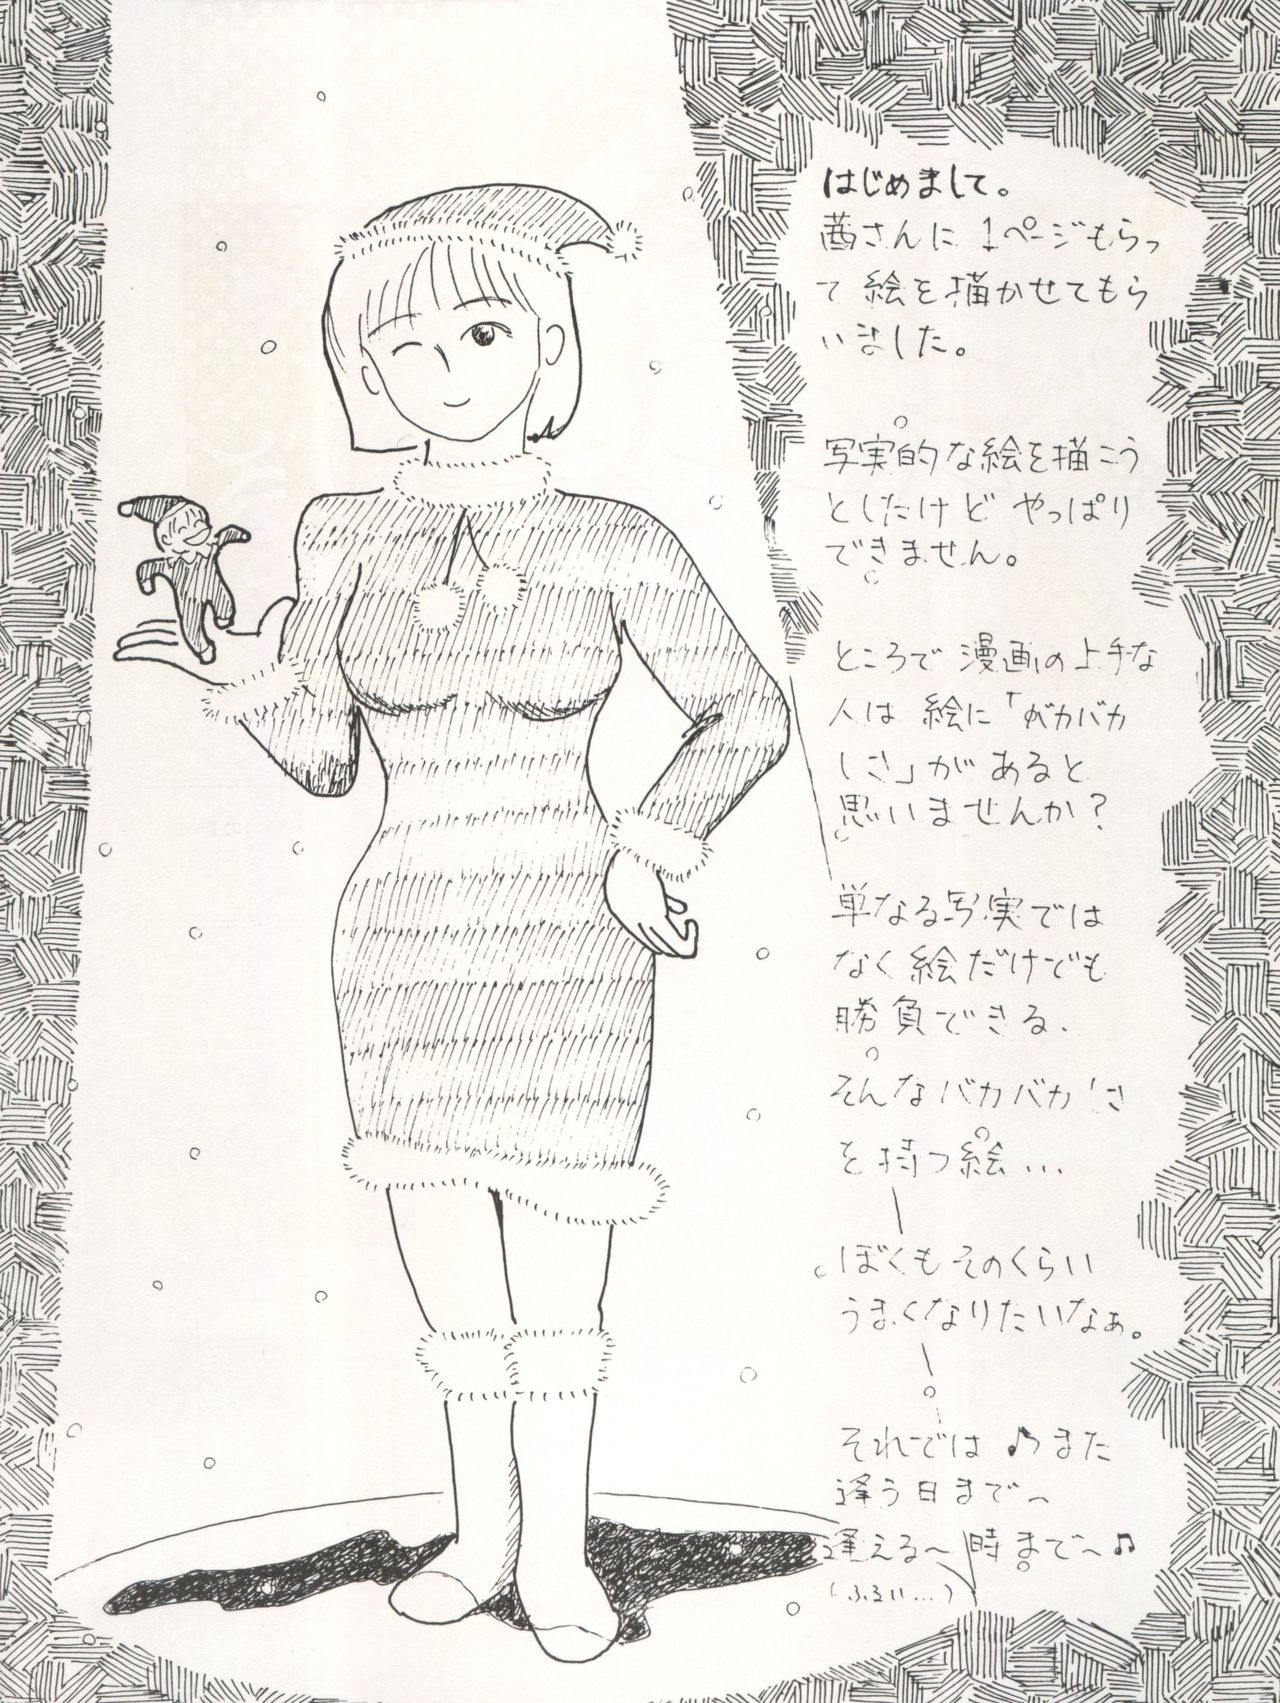 はじめまして。
茜さんに 1ページもらっ
て 絵を描かせてもら
いました。
写実的な絵を描こう
としたけど やっぱり
できません。
ところで 漫画の上手な
人は 絵に「バカバカ
しさ」が あると
思いませんか?
単なる写実では
なく絵だけでも
勝負できる、
そんなバカバカしさ
を持つ絵...
ぼくもそのくらい
うまくなりたいなぁ。
それでは ♪ また
逢う日まで〜
逢える〜 時まで〜♫
(ふるい...)